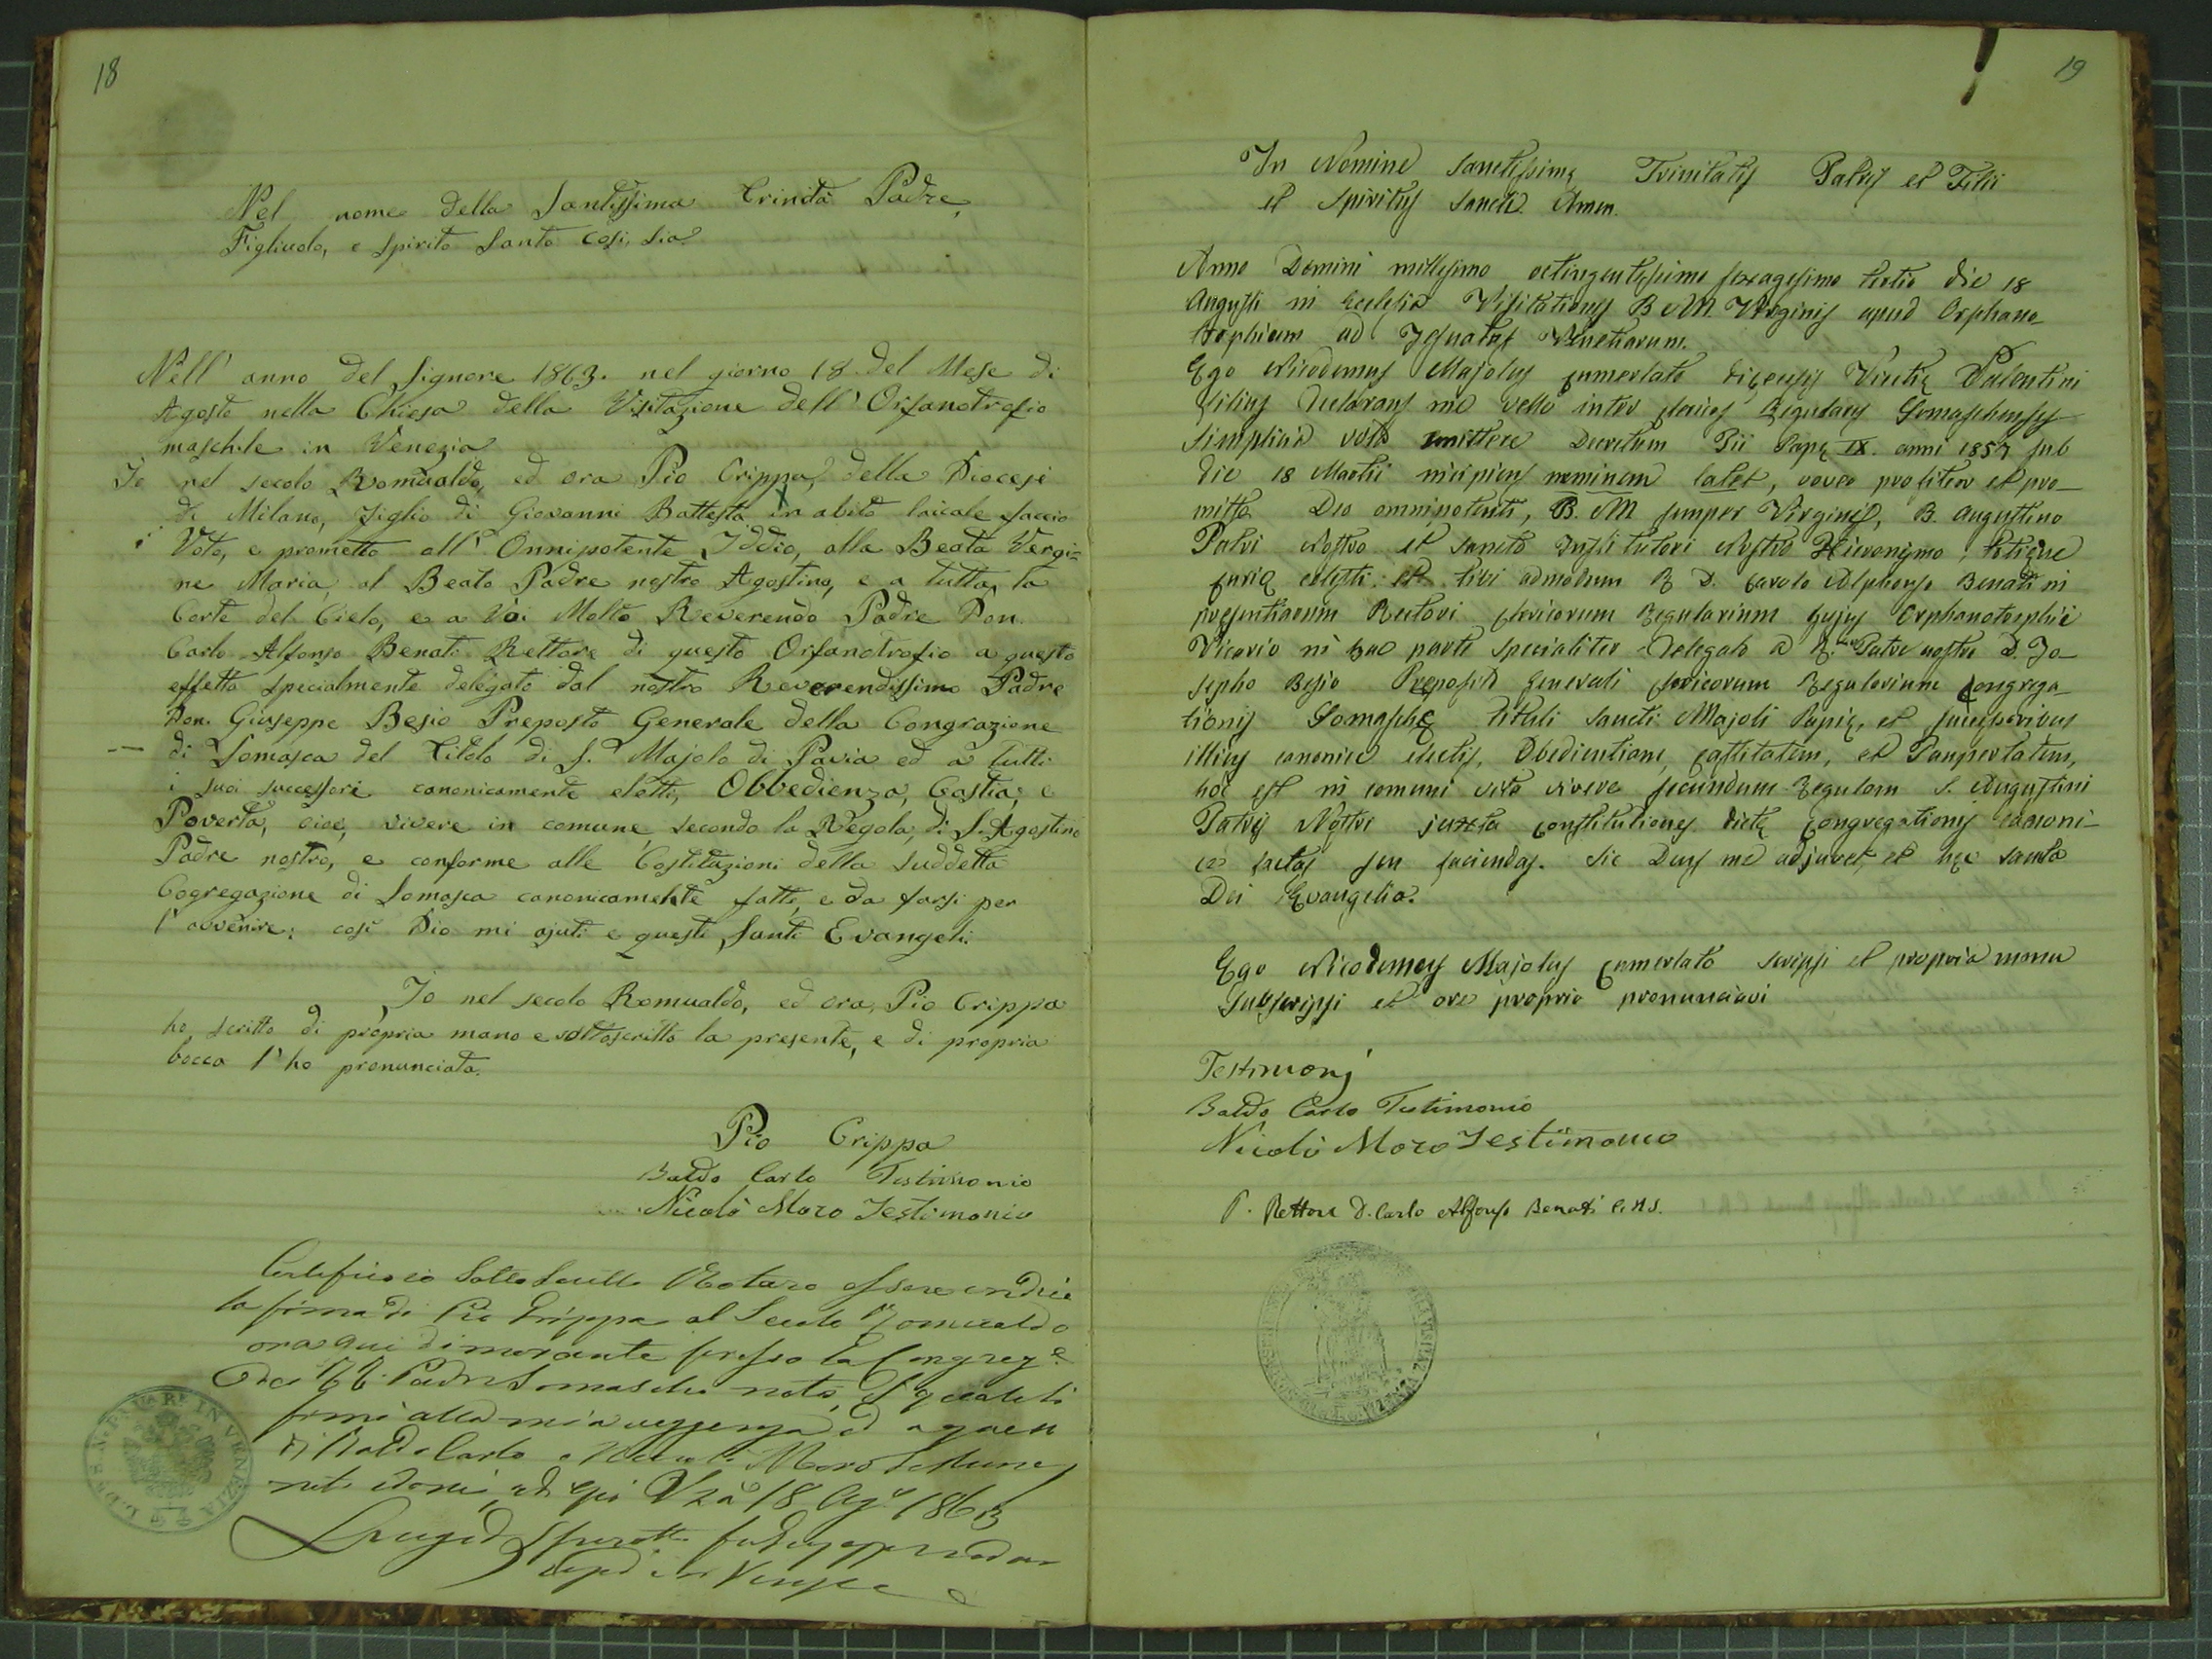 18
Nel nome della Santissima Trinità Padre,
Figliuolo, e Spirito Santo così sia
Nell' anno del Signore 1863. nel giorno 18 del Mese di
Agosto nella Chiesa della Visitazione dell' Orfanotrofio
maschile in Venezia
Io nel secolo Romualdo, ed ora Pio Crippa, della Diocesi
di Milano, figlio di Giovanni Battista in abito laicale faccio
Voto, e prometto all' Onnipotente Iddio, alla Beata Vergi=
ne Maria, al Beato Padre nostro Agostino, e a tutta la
Corte del Cielo, e a Voi Molto Reverendo Padre Don
Carlo Alfonso Benati Rettore di questo Orfanotrofio a questo
effetto specialmente delegato dal nostro Reverendissimo Padre
Don. Giuseppe Besio Preposto Generale della Congrazione
di Somasca del Titolo di S. Majolo di Pavia ed a tutti
i suoi successori canonicamente eletti, Obbedienza, Castia, e
Povertà, cioe, vivere in comune secondo la Regola, di S. Agostino
Padre nostro, e conforme alle Costituzioni della suddetta
Cogregazione di Somasca canonicamente fatte, e da farsi per
l' avvenire: così Dio mi ajuti e questi Santi Evangeli.
Io nel secolo Romualdo, ed ora, Pio Crippa
ho scritto di propria mano e sottoscritto la presente, e di propria
bocca l' ho pronunciata.
Pio Crippa
Baldo Carlo Testimonio
Nicolò Moro Testimonio
Certifico io Sottoscritto Notaro essere
la firma di Pio Crippa al Secolo Romualdo
ora qui dimorante presso la Congreg.e
dei RR. Padri Somaschi
firmò alla mia ed a quella
di Baldo Carlo e Nicolò Moro
18 Ag.o 1863
in Venezia
IN VENEZIA
19
In Nomine Sanctissimę Trinitatis Patris et Filii
et Spiritus Sancti. Amen.
Anno Domini millesimo octingentesimo sexagesimo tertio die 18
Augusti in Ecclesia Visitationis B. M. Virginis apud Orphano_
trophium ad Jesuatas Venetiarum.
Ego Nicodemus Majolus Cumerlato Dięcesis Vincetię Valentini
filius declarans me velle inter clericos Regulares Somaschenses
simplicia vota emittere Decretum Pii Papę IX. anni 1857 sub
die 18 Martii incipiens neminem latet, voveo profiteor et pro_
mitto Deo omnipotenti, B. M semper Virgini, B. Augustino
Patri Nostro et sancto Institutori Nostro Hieronymo, totique
curię celesti: et tibi admodum R. D. Carolo Alphonso Benati in
presentiarum Rectori clericorum Regularium hujus Orphanotrophii
Vicario in hac parte specialiter Delegato a R.mo Patre nostro D. Jo_
sepho Besio Preposito Generali clericorum Regularium Congrega_
tionis Somaschę tituli sancti Majoli Papię, et successoribus
illius canonice electis, Obedientiam, castitatem, et Paupertatem,
hoc est in comuni vita vivere secundum Regulam S. Augustini
Patris Nostri juxta constitutiones dictę congregationis canoni_
ce factas seu faciendas. Sic Deus me adjuvet, et hęc sancta
Dei Evangelia.
Ego Nicodemus Majolus Cumerlato scripsi et propria manu
subscripsi et ore proprio pronunciavi
Testimonj
Baldo Carlo Testimonio
Nicolò Moro Testimonio
P. Rettore D. Carlo Alfonso Benati C.R.S.